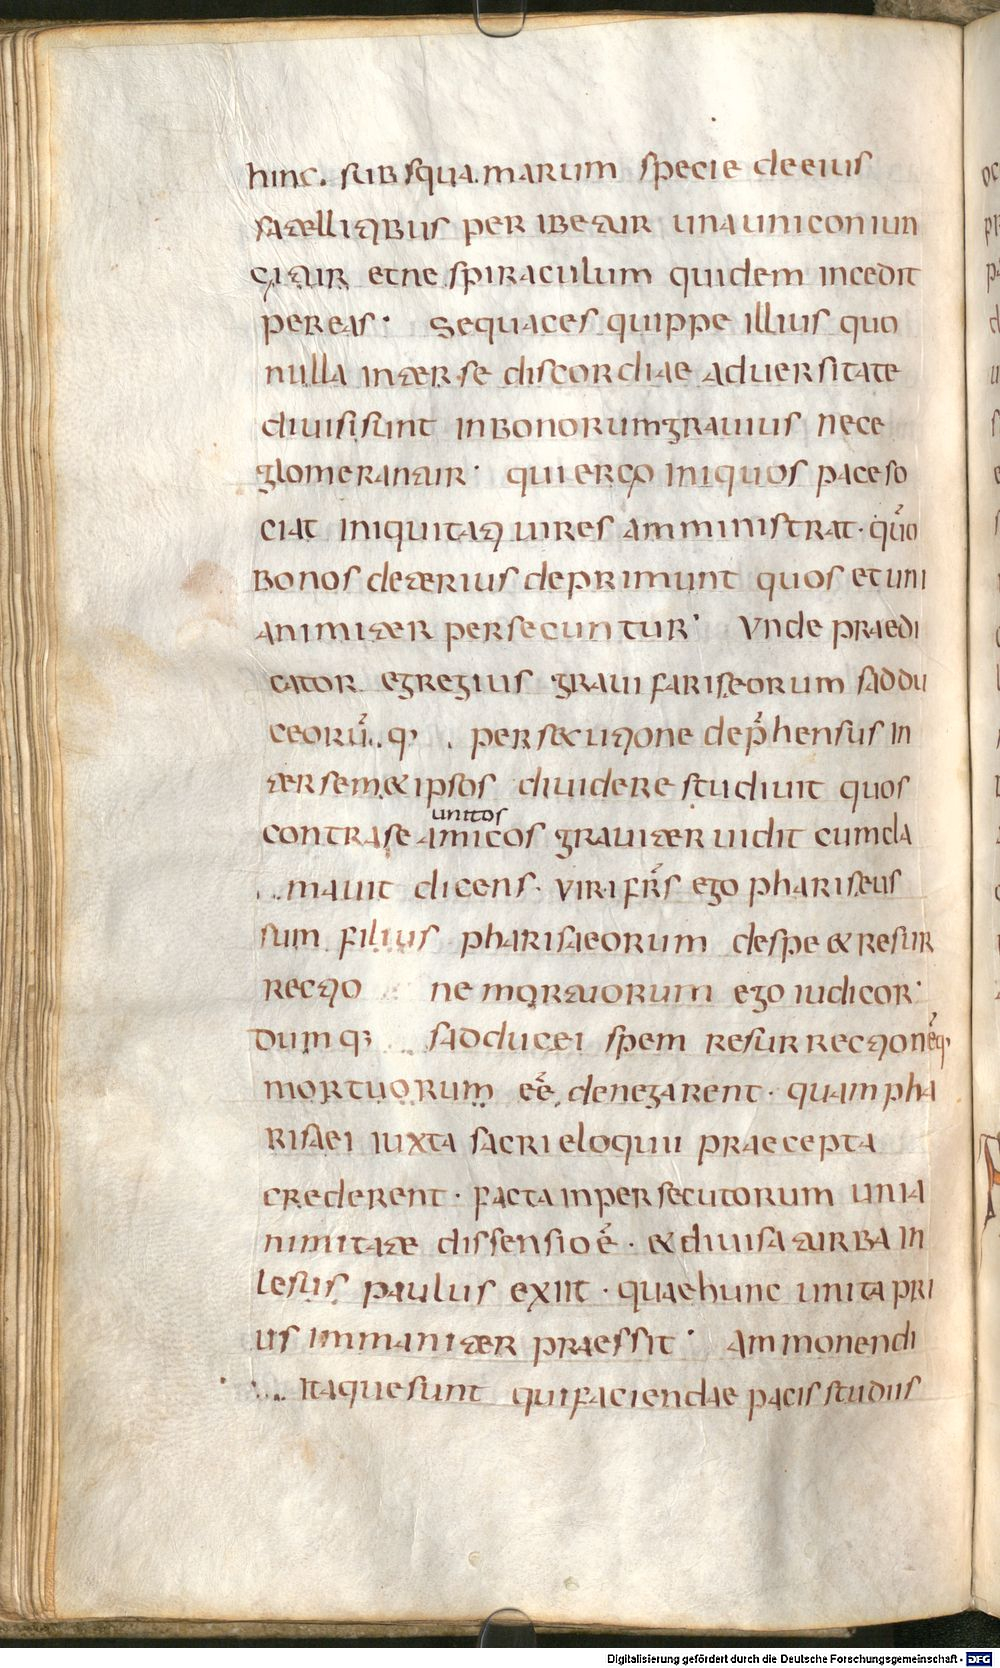 hinc. sub squamarum specie deeius
satellitibus per ibetur unauniconiun
gitur etne spiraculum quidem incedit
pereas· Sequaces quippe illius quo
nulla interse discordiae aduersitate
diuisisunt inbonorumgrauius nece
glomerantur· quiergo iniquos paceso
ciat iniquitati uires amministrat· quo
bonos deterius deprimunt quos etuni
animiter persecuntur· Unde praedi
cator egregius graui fariseorum saddu
ceorū q· persecutione dep̄hensus in
tersem&ipsos diuidere studiuit quos
unitos
contrase amicos grauiter uidit cumcla
mauit dicens· viri fr̄s ego phariseus
sum filius pharisaeorum despe &resur
rectio ne mortuorum ego iudicor·
Dumq; sadducei spem resurrectionēq·
mortuorum eē denegarent· quampha
risaei iuxta sacrieloquii praecepta
crederent· facta inpersecutorum unia
nimitate dissensio ē· &diuisa turba in
lesus paulus exiit· quaehunc unita pri
us immaniter praessit· Ammonendi
itaquesunt quifaciendae pacis studiis
Digitalisierung gefördert durch die Deutsche Forschungsgemeinschaft · DFG